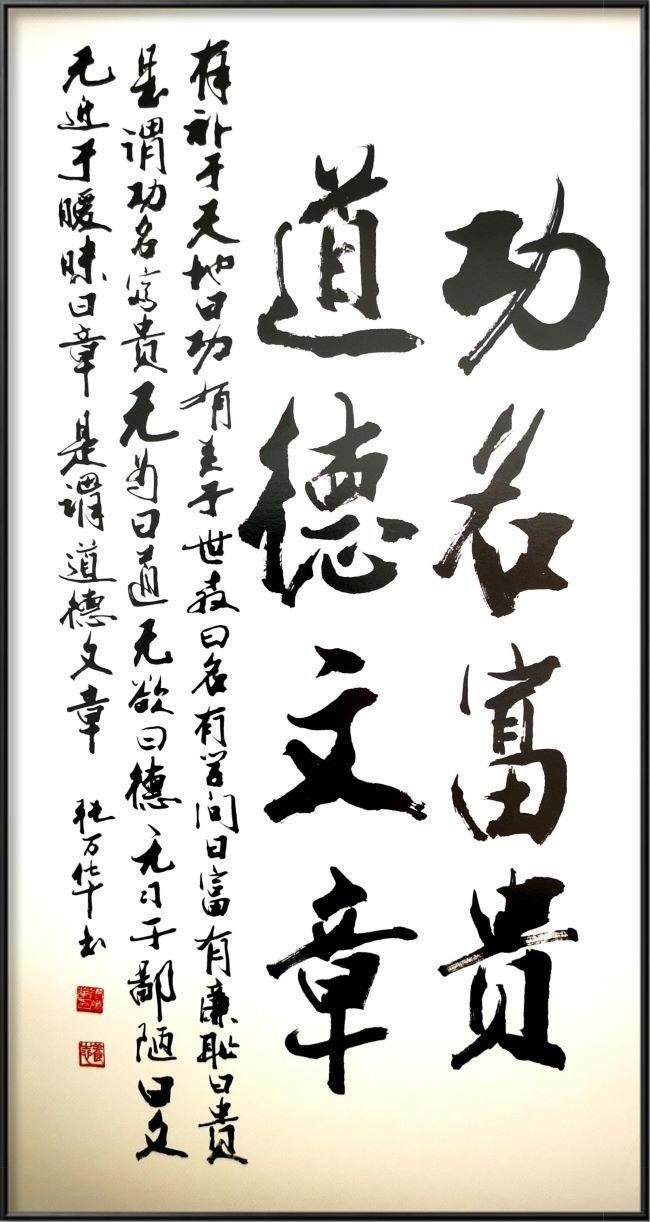 功名富貴
道德文章
有补于天地曰功有关于世教曰名有学问曰富有廉耻曰貴
是谓功名富貴无为曰道无欲曰德、无习于鄙陋曰文
无近于暧昧曰章是谓道德文章 张万华书